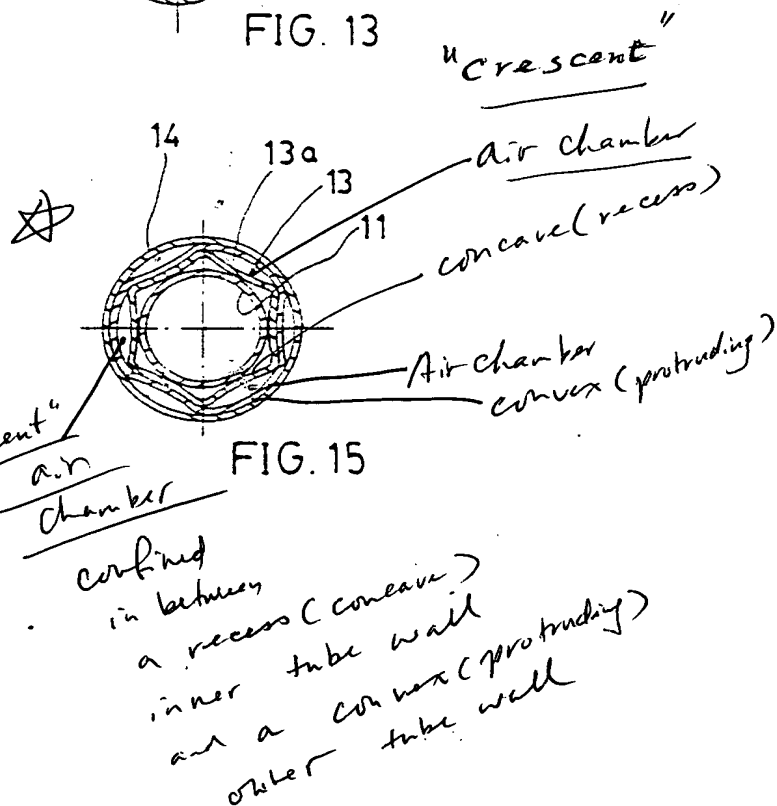 FIG. 13
"Crescent"
14
13a
13
11
air chamber
concave (recess)
Air chamber
convex (protruding)
FIG. 15
ent"
air
chamber
confined
in between
a recess (concave)
inner tube wall
and a convex (protruding)
outer tube wall